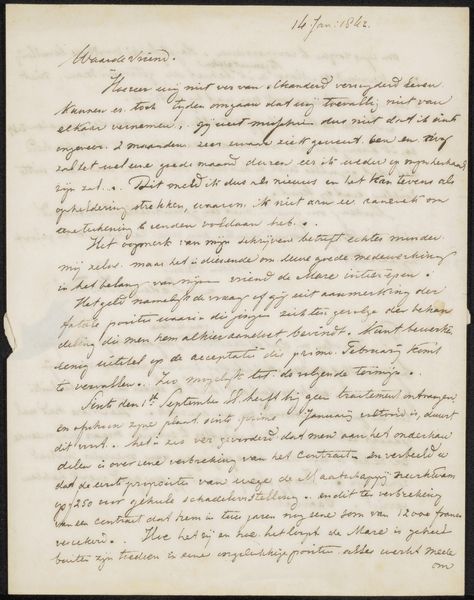 14 Jan: 1862.
Waarde Vriend.
Hoever wij niet ver van elkanderd verwijderd leven
kunnen er toch tijden omgaan dat wij toevallig niet van
elkaar vernemen, gij weet misschien dus niet dat ik sints
ongeveer 2 maanden zeer zwaar ziek geweest ben en nog
zal het wel eene goede maand duren eer ik weder op mijn
zijn zal. Dit meld ik dus als nieuws en het kan tevens als
opheldering strekken, waarom ik niet aan uw aanzoek om
eene teekening te zenden voldaan heb.
Het oogmerk van mijn schrijven betreft echter minder
mij zelve maar het is dienende om uwe goede medewerking
in het belang van mijn vriend de Mare interoepen.
Het geld namelijk de vraag of gij uit aanmerking der
fatale positie waarin die jongen zich ten gevolge der behan
deling die men hem alhier aandoet, bevindt. Kunt bewerke
uitstel op de acceptatie die primo February komt
te vervallen. Zoo mogelijk tot de volgende termijn.
Sints den 1st September heeft hij geen traitement ontvangen
en ofschoon zijne plaats sints primo January vervuld is, duurt
dit voort. Het is zoo ver gevorderd dat men aan het onderhan
delen is over eene verbreking van het Contract en verbeeld u
dat de eerste propositie van wege de Maatschappij neerkwam
op f250 voor geheele schadeloosstelling. en dit ter verbreking
van een contract dat hem in twee jaren nog eene som van 12000 francs
verzekerd. Hoe het zij en hoe het loopt de Mare is geheel
buiten zijn toedoen in eene ongelukkige positie. alles werkt mede
om